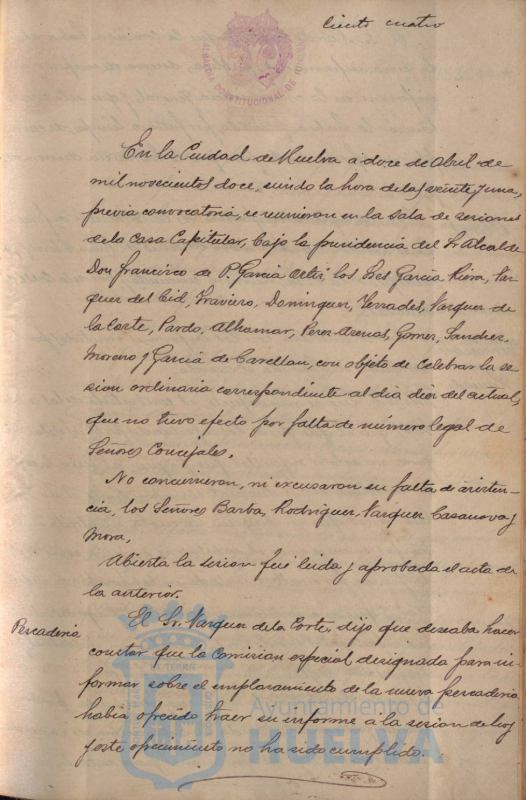 Ciento cuatro
ALCALDIA CONSTITUCIONAL DE HUELVA
En la Ciudad de Huelva á doce de Abril de
mil novecientos doce, siendo la hora de las veinte y una,
previa convocatoria, se reunieron en la Sala de sesiones
de la Casa Capitular, bajo la presidencia del Sr Alcalde
Don Francisco de P. Garcia Ortiz los Sres Garcia Riera, Vaz-
quez del Cid, Traviero, Dominguez, Terrades, Vazquez de
la Corte, Pardo, Alhamar, Perez Arenas, Gomez, Sanchez,
Moreno y Garcia de Castellan, con objeto de celebrar la se-
sion ordinaria correspondiente al dia diez del actual,
que no tuvo efecto por falta de número legal de
Señores Concejales.
No concurrieron, ni excusaron su falta de asisten-
cia, los Señores Barba, Rodriguez, Vazquez Casanova y
Mora.
Abierta la sesion fué leida y aprobada el acta de
la anterior.
Pescaderia
El Sr. Vazquez de la Corte, dijo que deseaba hacer
constar que la Comision especial designada para in-
formar sobre el emplazamiento de la nueva pescaderia
habia ofrecido traer su informe a la sesion de hoy
y este ofrecimiento no ha sido cumplido.
Ayuntamiento de
HUELVA